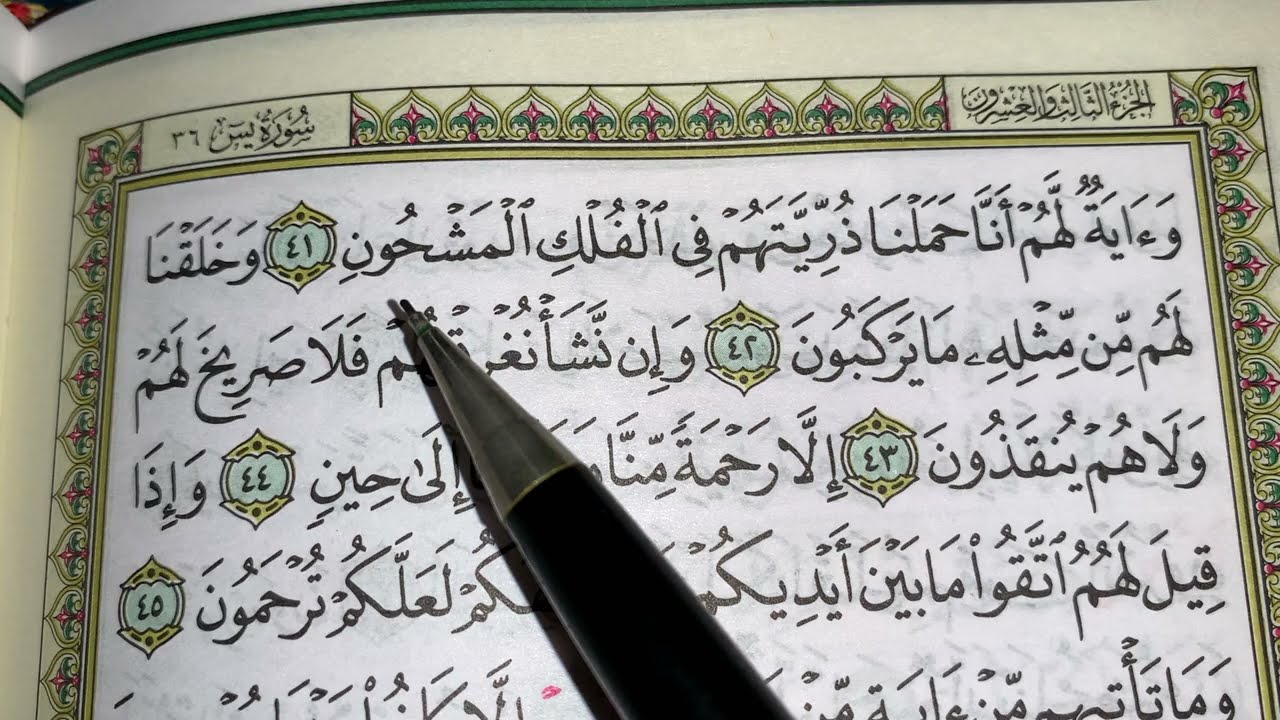 الجزء الثالث والعشرون
سورة يس ٣٦
وَءَايَةٌ لَّهُمْ أَنَّا حَمَلْنَا ذُرِّيَّتَهُمْ فِي ٱلْفُلْكِ ٱلْمَشْحُونِ ٤١ وَخَلَقْنَا
لَهُم مِّن مِّثْلِهِۦ مَا يَرْكَبُونَ ٤٢ وَإِن نَّشَأْ نُغْرِقْهُمْ فَلَا صَرِيخَ لَهُمْ
وَلَا هُمْ يُنقَذُونَ ٤٣ إِلَّا رَحْمَةً مِّنَّا إِلَىٰ حِينٍ ٤٤ وَإِذَا
قِيلَ لَهُمُ ٱتَّقُوا۟ مَا بَيْنَ أَيْدِيكُمْ لَعَلَّكُمْ تُرْحَمُونَ ٤٥
وَمَا تَأْتِيهِم مِّنْ ءَايَةٍ مِّنْ إِلَّا